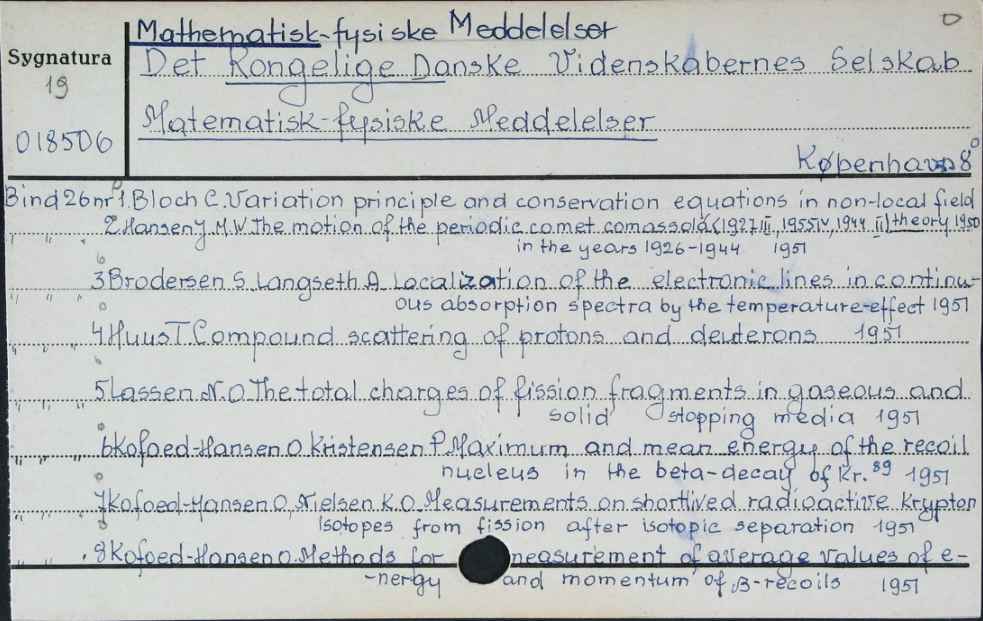 Mathematisk-fysiske Meddelelser
Sygnatura
19
018506
Det Kongelige Danske Videnskabernes Selskab
Matematisk-fysiske Meddelelser
København 8°
Bind 26 nr 1. Bloch C. Variation principle and conservation equations in non-local field
theory 1950
" " 2 Hansen J. M. W. The motion of the periodic comet comassolá (1927 III, 1935 IV, 1944 II)
in the years 1926-1944 1951
" " 3 Brodersen S. Langseth A. Localization of the electronic lines in continu-
ous absorption spectra by the temperature-effect 1951
" " 4 Huus T. Compound scattering of protons and deuterons 1951
" " 5 Lassen N. O. The total charges of fission fragments in gaseous and
solid stopping media 1951
" " 6 Kofoed-Hansen O. Kristensen P. Maximum and mean energy of the recoil
nucleus in the beta-decay of Kr.89 1951
" " 7 Kofoed-Hansen O, Nielsen K.O. Measurements on shortlived radioactive krypton
isotopes from fission after isotopic separation 1951
" " 8 Kofoed-Hansen O. Methods for measurement of average values of e-
-nergy and momentum of β-recoils 1951